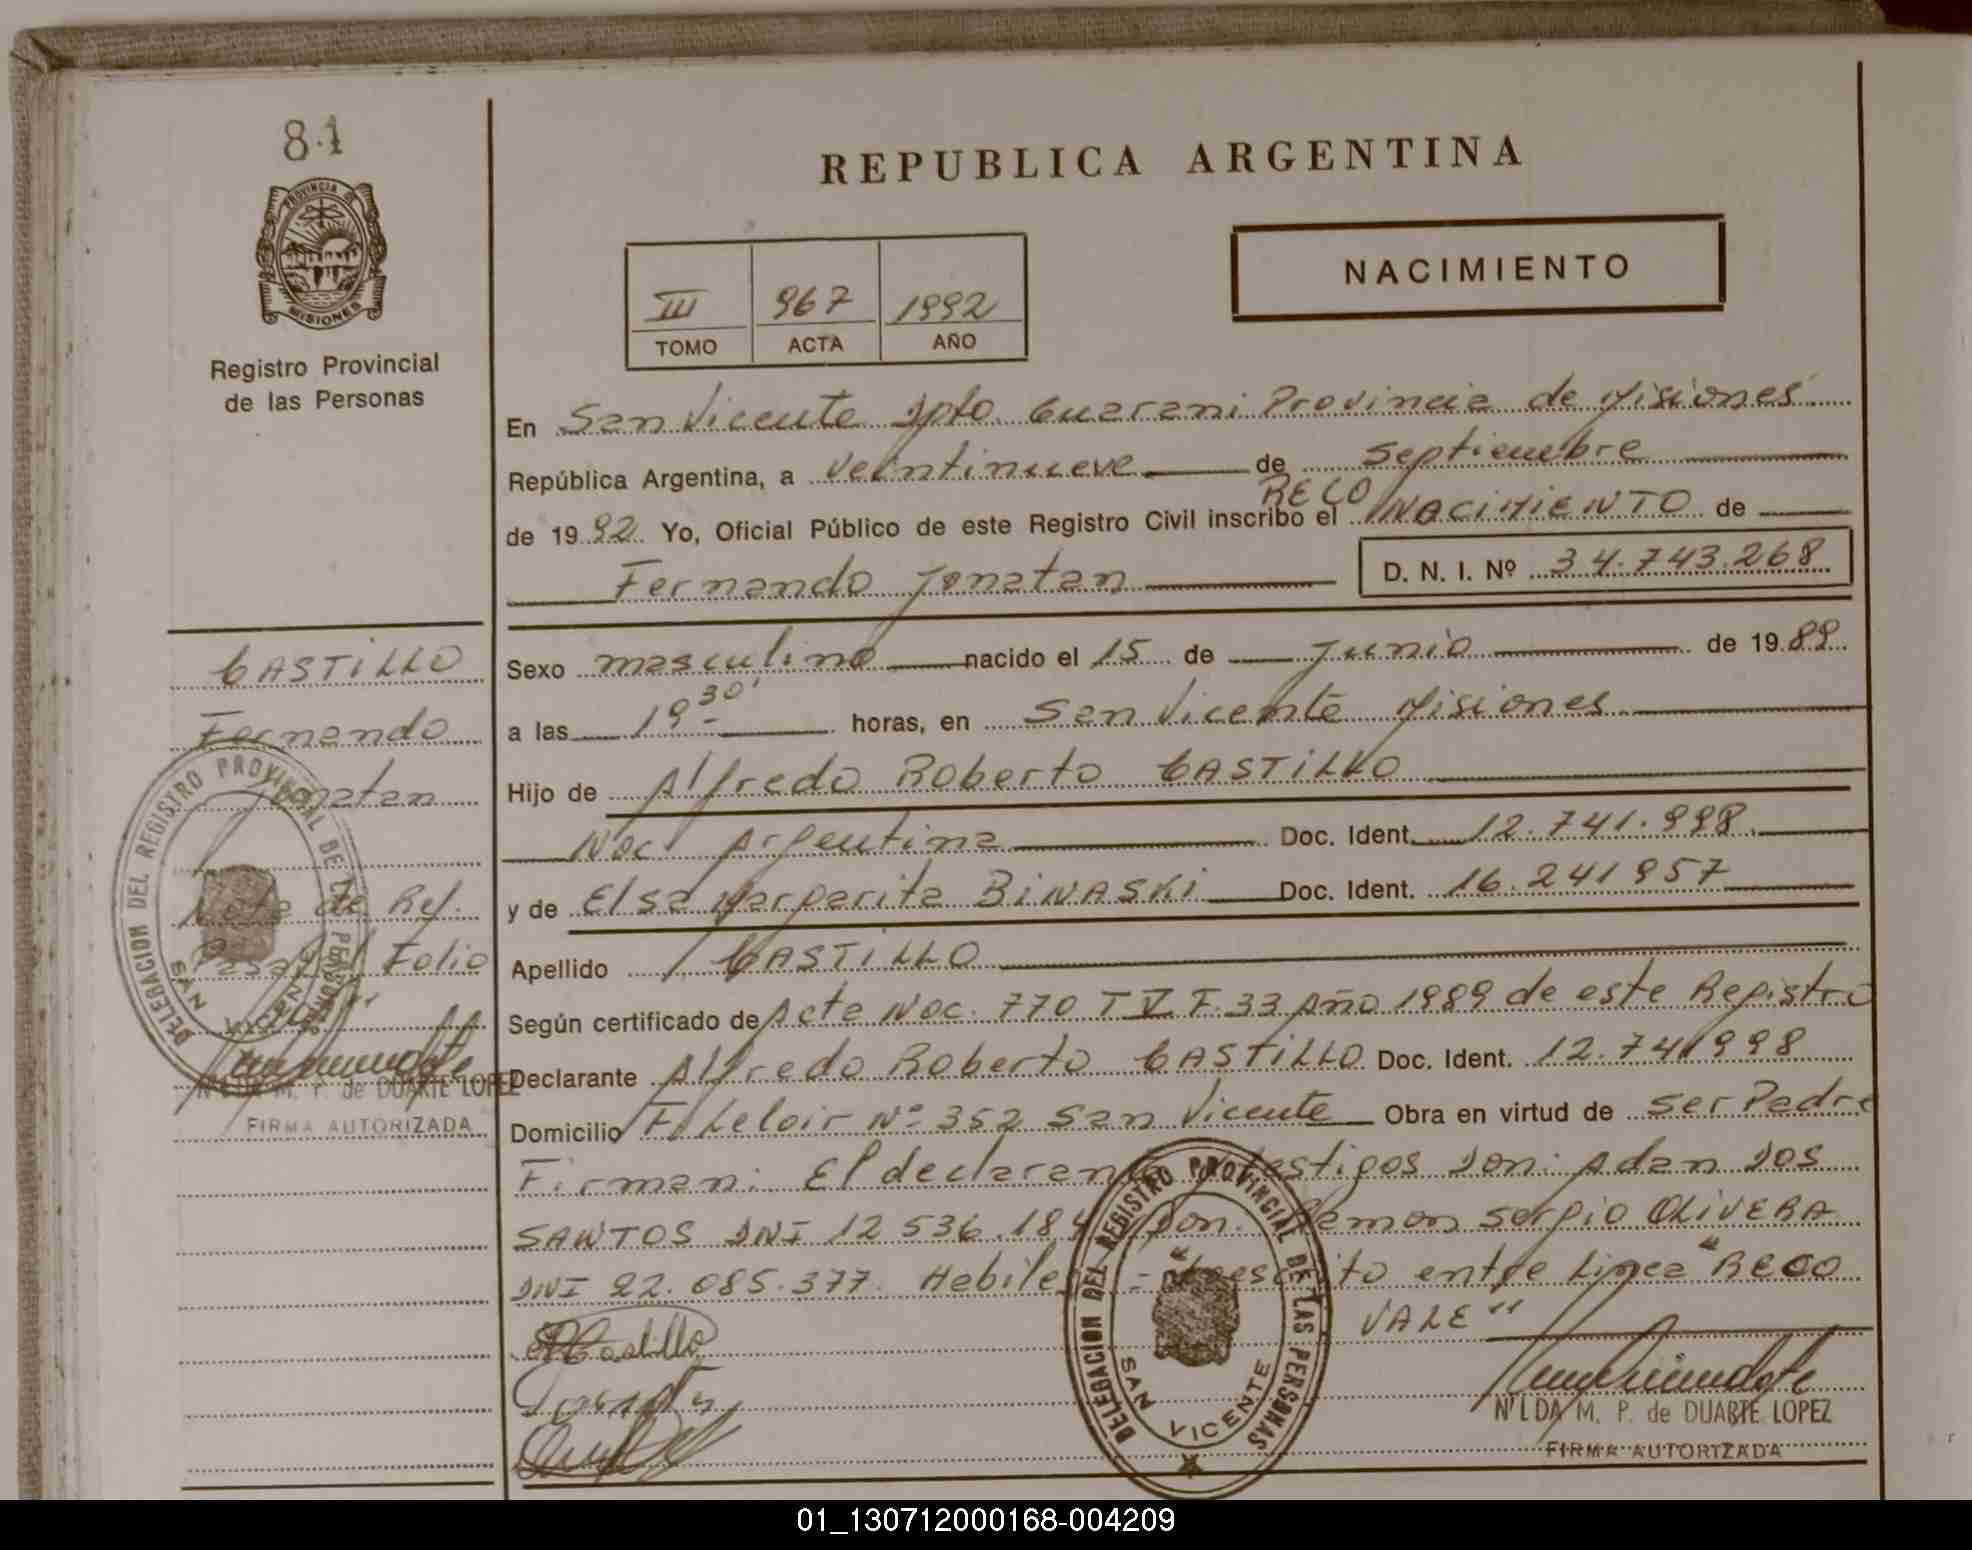 81
PROVINCIA DE
MISIONES
Registro Provincial
de las Personas
REPUBLICA ARGENTINA
NACIMIENTO
III 967 1992
TOMO ACTA AÑO
En San Vicente Dpto. Guarani Provincia de Misiones
República Argentina, a veintinueve de septiembre
RECO
de 1992 Yo, Oficial Público de este Registro Civil inscribo el NACIMIENTO de
Fernando Jonatan D. N. I. Nº 34.743.268
Sexo masculino nacido el 15 de Junio de 1989
a las 19 30' horas, en San Vicente Misiones
Hijo de Alfredo Roberto CASTILLO
Nac. Argentina Doc. Ident. 12.741.998
y de Elsa Margarita BINASKI Doc. Ident. 16.241957
Apellido CASTILLO
Según certificado de Acta Nac. 770 T V F. 33 Año 1989 de este Registro
Declarante Alfredo Roberto CASTILLO Doc. Ident. 12.741998
Domicilio F. Leloir Nº 352 San Vicente Obra en virtud de ser Padre
Firman: El declarante testigos Don: Adan DOS
SANTOS DNI 12 536.184 Don. Ramon Sergio OLIVERA
DNI 22.085.377. Habiles - entre Linea "RECO
VALE"
CASTILLO
Fernando
Jonatan
Nota de Ref.
Pasa al Folio
DELEGACION DEL REGISTRO PROVINCIAL DE LAS PERSONAS
SAN VICENTE
NILDA M. P. de DUARTE LOPEZ
FIRMA AUTORIZADA
DELEGACION DEL REGISTRO PROVINCIAL DE LAS PERSONAS
SAN VICENTE
NILDA M. P. de DUARTE LOPEZ
FIRMA AUTORIZADA
01_130712000168-004209